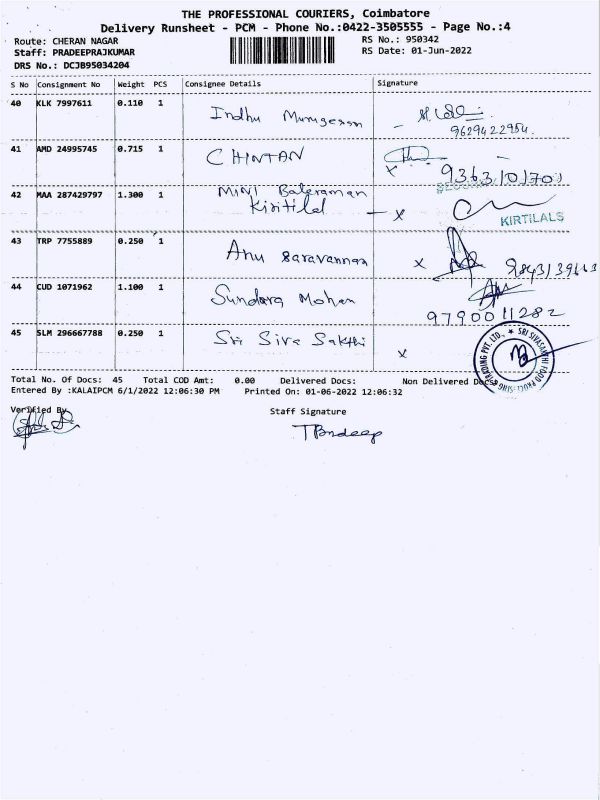 THE PROFESSIONAL COURIERS, Coimbatore
Delivery Runsheet - PCM - Phone No.:0422-3505555 - Page No.:4
Route: CHERAN NAGAR
RS No.: 950342
Staff: PRADEEPRAJKUMAR
RS Date: 01-Jun-2022
DRS No.: DCJB95034204
S No Consignment No Weight PCS Consignee Details Signature
40 KLK 7997611 0.110 1 Indhu Murugesan
9629422954.
41 AMD 24995745 0.715 1 CHINTAN
x 9363101701
42 MAA 287429797 1.300 1 MINI Baleraman
Kirtilal x KIRTILALS
43 TRP 7755889 0.250 1 Anu saravannan x
44 CUD 1071962 1.100 1 Sundara Mohan
9790011282
45 SLM 296667788 0.250 1 Sri Siva Sakthi x
Total No. Of Docs: 45 Total COD Amt: 0.00 Delivered Docs: Non Delivered Docs:
Entered By :KALAIPCM 6/1/2022 12:06:30 PM Printed On: 01-06-2022 12:06:32
Verified By
Staff Signature